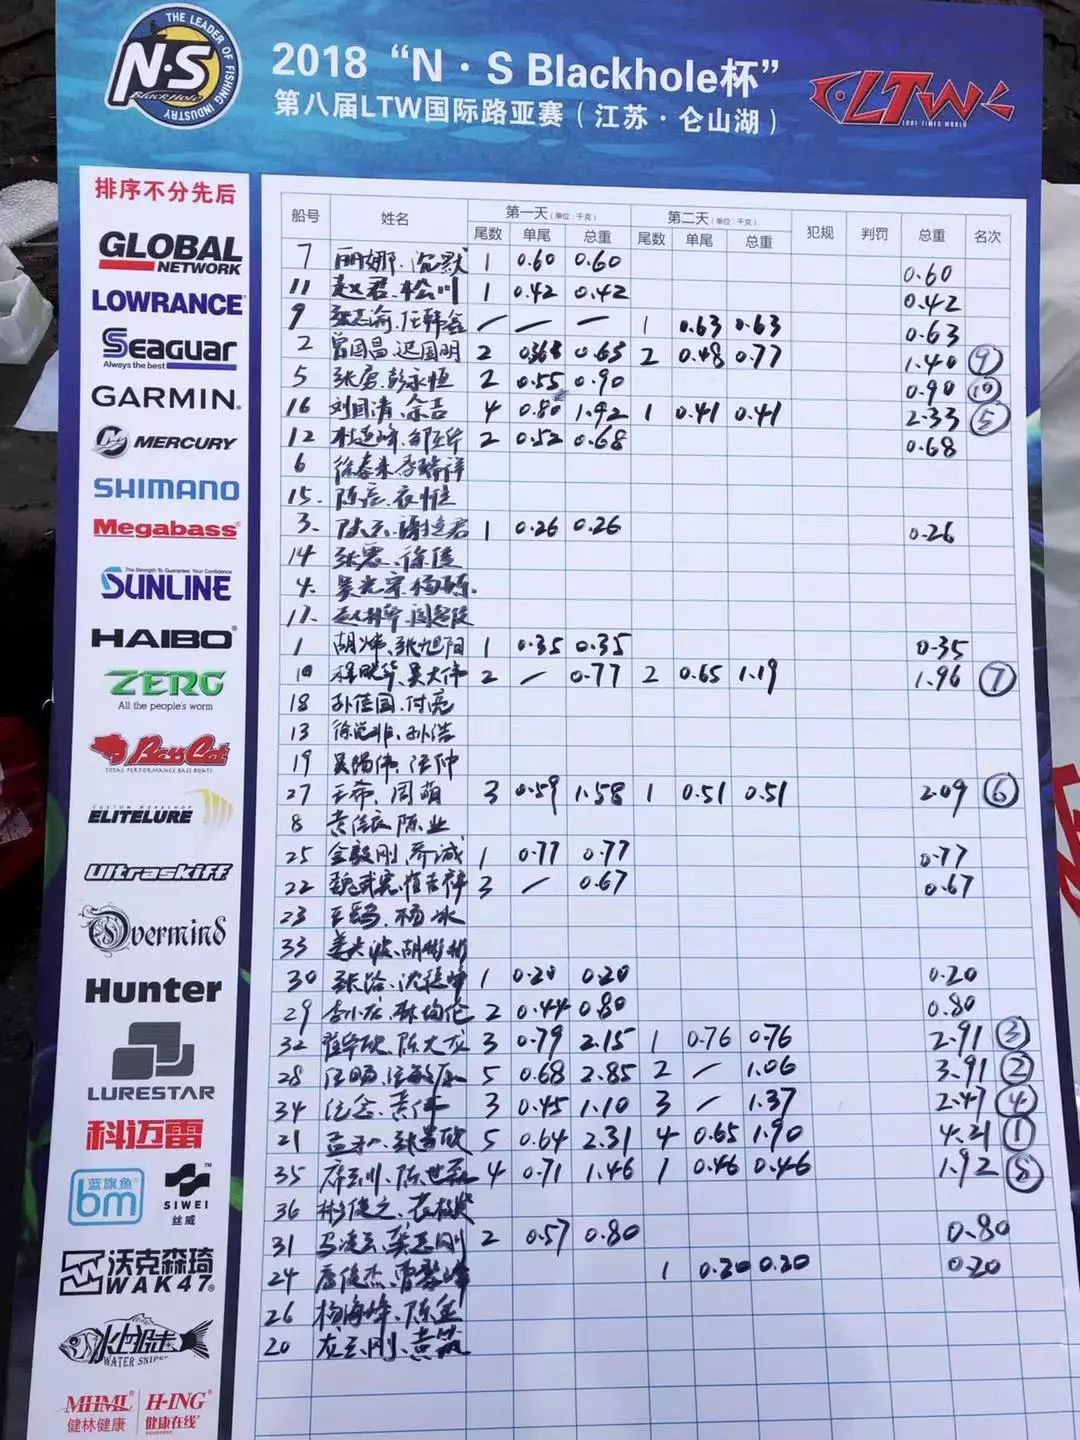 THE LEADER OF FISHING INDUSTRY
N·S
BLACKHOLE
2018 “N · S Blackhole杯”
第八届LTW国际路亚赛（江苏·仑山湖）
LTW
LURE TIMES WORLD
排序不分先后
GLOBAL
NETWORK
LOWRANCE
SEAGUAR
Always the best
GARMIN
MERCURY
SHIMANO
Megabass
The Strength To Guarantee Your Confidence
SUNLINE
HAIBO
ZERG
All the people's worm
Bass Cat
TOTAL PERFORMANCE BASS BOATS
CUSTOM WORKSHOP
ELITELURE
Ultraskiff
Overmind
Hunter
LURESTAR
科迈雷
蓝旗鱼
bm
SIWEI
丝威
沃克森琦
WAK47
WATER SNIPER
MHML
健林健康
H-ING
健康在线
船号 姓名 第一天（单位：千克） 第二天（单位：千克） 犯规 判罚 总重 名次
尾数 单尾 总重 尾数 单尾 总重
7 丽娜、沉默 1 0.60 0.60 0.60
11 赵君、 1 0.42 0.42 0.42
9 — — — 1 0.63 0.63 0.63
2 曾国昌、迟国明 2 0.363 0.65 2 0.48 0.77 1.40 ⑨
5 张磨、彭永恒 2 0.55 0.90 0.90 ⑩
16 刘国清、余吉 4 0.80 1.92 1 0.41 0.41 2.33 ⑤
12 2 0.52 0.68 0.68
6 徐春来、李瑞祥
15. 陈彦、衣惟
3. 1 0.26 0.26 0.26
14 张君、徐俊
4. 吴光宗、杨
17.
1 胡烨、张旭阳 1 0.35 0.35 0.35
10 程晓华、吴大伟 2 — 0.77 2 0.65 1.19 1.96 ⑦
18 孙佳国、付亮
13 徐 非、孙浩
19 伟、汪仲
27 王希、周萌 3 0.59 1.58 1 0.51 0.51 2.09 ⑥
8 陈业
25 金毅刚、乔诚 1 0.77 0.77 0.77
22 3 — 0.67 0.67
23 王 、杨冰
33 姜大波、胡彬彬
30 张 1 0.20 0.20 0.20
29 李小龙、 2 0.44 0.80 0.80
32 崔华欣、陈大龙 3 0.79 2.15 1 0.76 0.76 2.91 ③
28 汪旸、汪敏 5 0.68 2.85 2 — 1.06 3.91 ②
34 黄伟 3 0.45 1.10 3 — 1.37 2.47 ④
21 孟 、张 欣 5 0.64 2.31 4 0.65 1.90 4.21 ①
35 陈世磊 4 0.71 1.46 1 0.46 0.46 1.92 ⑧
36 彬俊之、
31 马凌云、龚志刚 2 0.57 0.80 0.80
24 唐俊杰、曹 峰 1 0.20 0.20 0.20
26 杨海峰、陈
20 刚、袁